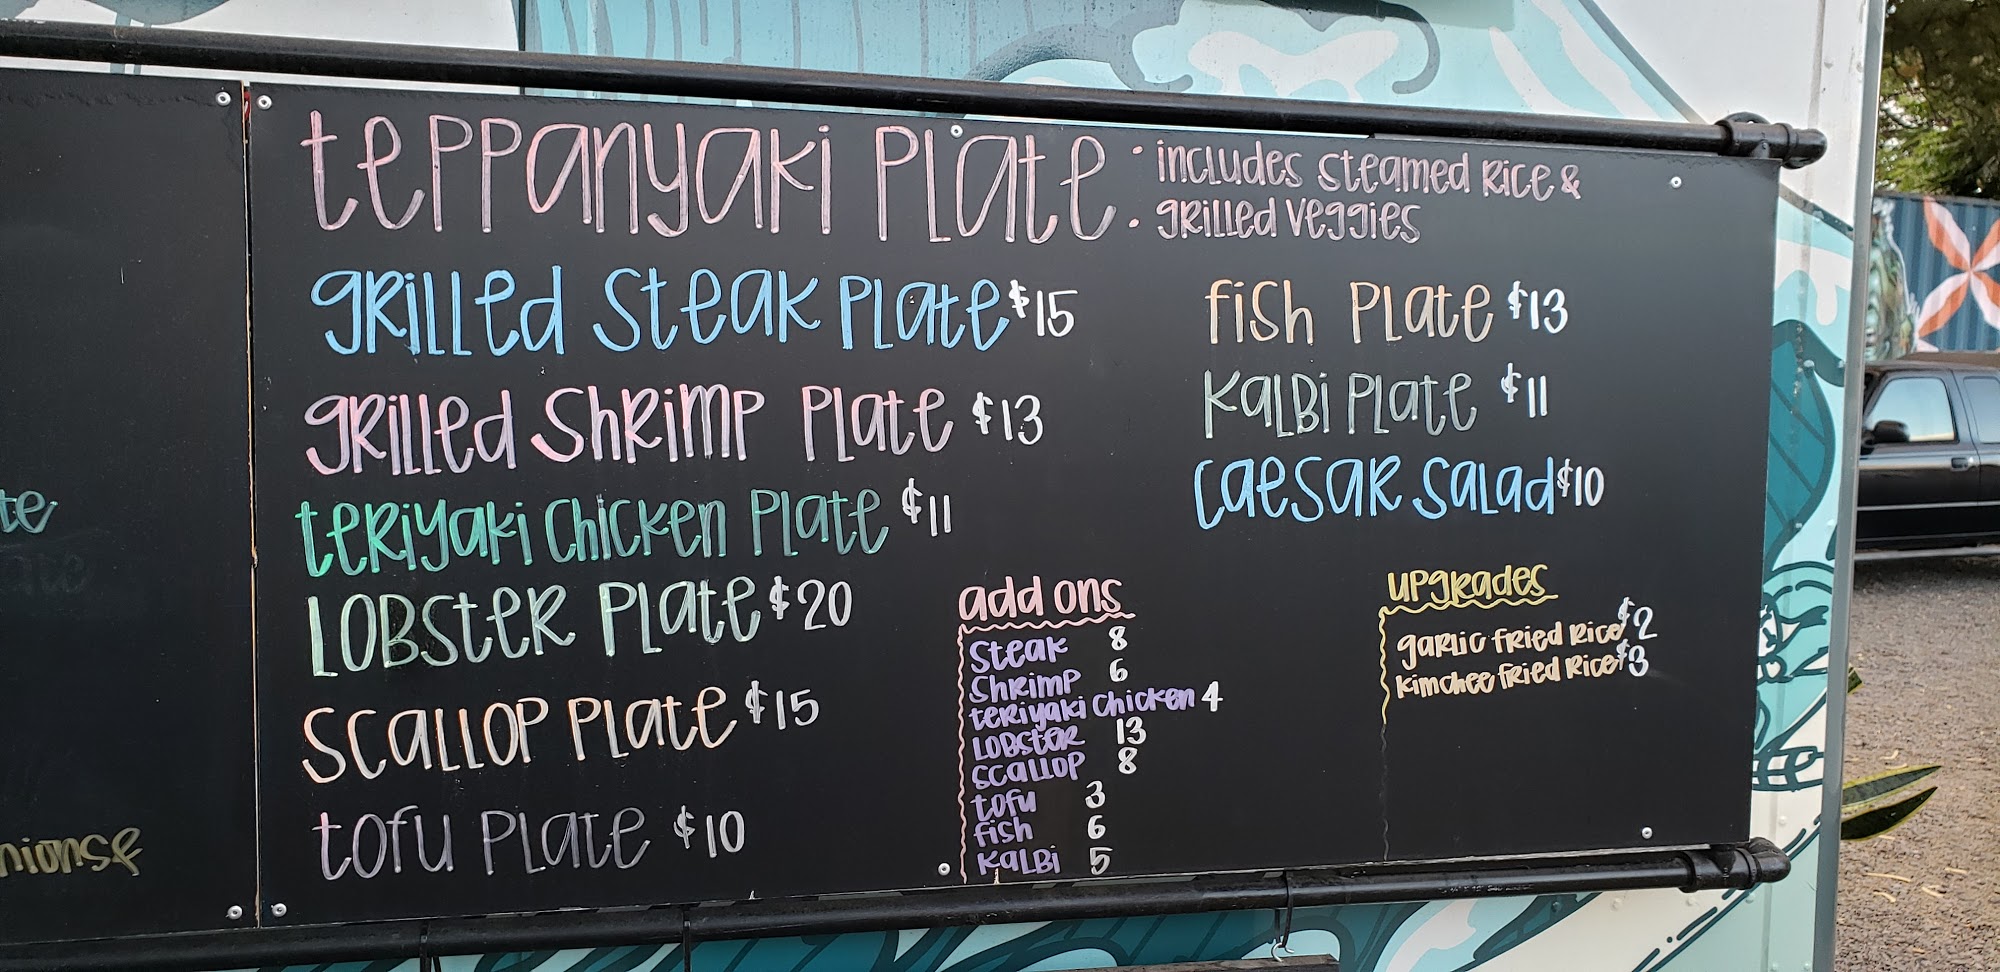 teppanyaki plate : includes steamed rice &
grilled veggies
grilled steak plate $15
grilled shrimp plate $13
teriyaki chicken plate $11
lobster plate $20
scallop plate $15
tofu plate $10
fish plate $13
kalbi plate $11
caesar salad $10
add ons
steak 8
shrimp 6
teriyaki chicken 4
lobster 13
scallop 8
tofu 3
fish 6
kalbi 5
upgrades
garlic fried rice $2
kimchee fried rice $3